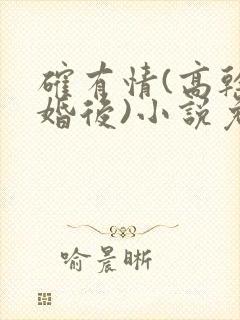 確有情(高幹
婚後)小說免
喻晨晰